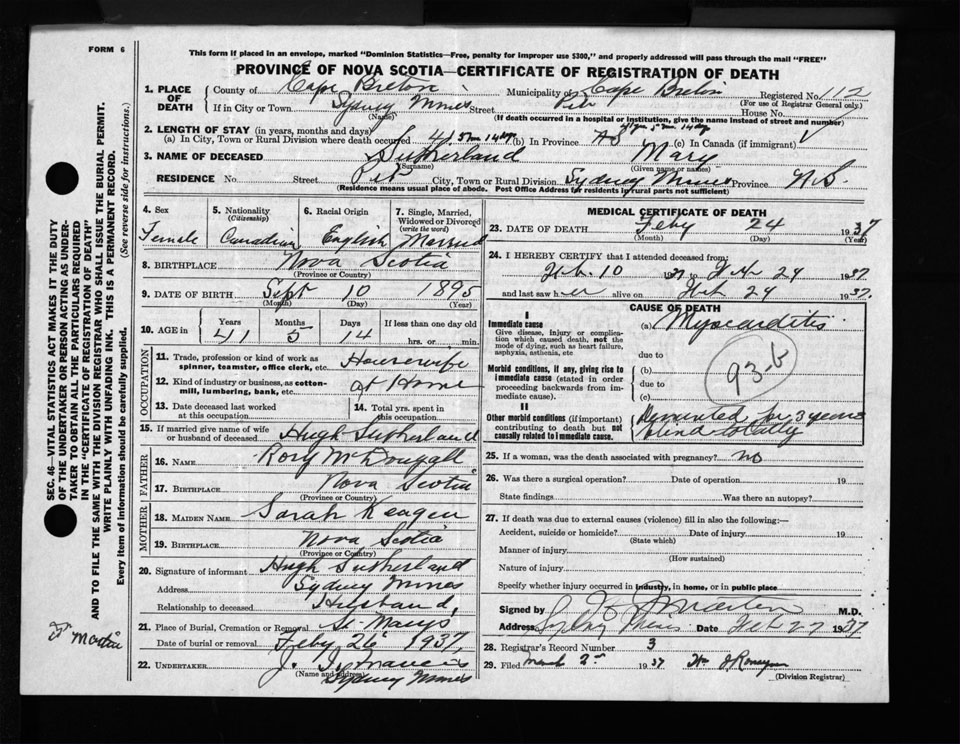 FORM 6
This form if placed in an envelope, marked "Dominion Statistics—Free, penalty for improper use $300," and properly addressed will pass through the mail "FREE"
PROVINCE OF NOVA SCOTIA—CERTIFICATE OF REGISTRATION OF DEATH
1. PLACE OF DEATH
County of Cape Breton Municipality of Cape Breton Registered No. 112
(For use of Registrar General only.)
If in City or Town Sydney Mines Street House No.
(Name) (If death occurred in a hospital or institution, give the name instead of street and number)
2. LENGTH OF STAY (in years, months and days)
(a) In City, Town or Rural Division where death occurred 41. 5m 14dys (b) In Province 41 yrs 5m 14dys (c) In Canada (if immigrant)
3. NAME OF DECEASED Sutherland Mary
(Surname) (Given name or names)
RESIDENCE No. Street Pit City, Town or Rural Division Sydney Mines Province N.S.
(Residence means usual place of abode. Post Office Address for residents in rural parts not sufficient)
4. Sex Female
5. Nationality (Citizenship) Canadian
6. Racial Origin English
7. Single, Married, Widowed or Divorced (write the word) Married
8. BIRTHPLACE Nova Scotia
(Province or Country)
9. DATE OF BIRTH Sept 10 1895
(Month) (Day) (Year)
10. AGE in Years Months Days If less than one day old
41 5 14 hrs. or min.
OCCUPATION
11. Trade, profession or kind of work as spinner, teamster, office clerk, etc. Housewife
12. Kind of industry or business, as cotton-mill, lumbering, bank, etc. at Home
13. Date deceased last worked at this occupation
14. Total yrs. spent in this occupation
15. If married give name of wife or husband of deceased Hugh Sutherland
FATHER
16. NAME Rory McDougall
17. BIRTHPLACE Nova Scotia
(Province or Country)
MOTHER
18. MAIDEN NAME Sarah Keagen
19. BIRTHPLACE Nova Scotia
(Province or Country)
20. Signature of informant Hugh Sutherland
Address Sydney Mines
Relationship to deceased Husband
21. Place of Burial, Cremation or Removal St Marys
Date of burial or removal Feby 26 1937
22. UNDERTAKER J.
(Name and address) Sydney Mines
MEDICAL CERTIFICATE OF DEATH
23. DATE OF DEATH Feby 24 1937
(Month) (Day) (Year)
24. I HEREBY CERTIFY that I attended deceased from:
Feb. 10 1937 to Feb 24 1937
and last saw her alive on Feb 24 1937.
CAUSE OF DEATH
I
Immediate cause
Give disease, injury or complication which caused death, not the mode of dying, such as heart failure, asphyxia, asthenia, etc
(a) Myocarditis
due to
Morbid conditions, if any, giving rise to immediate cause (stated in order proceeding backwards from immediate cause).
(b)
due to
(c)
93-b
II
Other morbid conditions (if important) contributing to death but not causally related to immediate cause.
Demented for 3 years
blind totally
25. If a woman, was the death associated with pregnancy? no
26. Was there a surgical operation? Date of operation 19
State findings Was there an autopsy?
27. If death was due to external causes (violence) fill in also the following:—
Accident, suicide or homicide? Date of injury 19
(State which)
Manner of injury
(How sustained)
Nature of injury
Specify whether injury occurred in industry, in home, or in public place
Signed by Martin M.D.
Address Sydney Mines Date Feb 27 1937
28. Registrar's Record Number 3
29. Filed March 2nd 1937 Wm
(Division Registrar)
SEC. 46—VITAL STATISTICS ACT MAKES IT THE DUTY
OF THE UNDERTAKER OR PERSON ACTING AS UNDER-
TAKER TO OBTAIN ALL THE PARTICULARS REQUIRED
IN THE "CERTIFICATE OF REGISTRATION OF DEATH"
AND TO FILE THE SAME WITH THE DIVISION REGISTRAR WHO SHALL ISSUE THE BURIAL PERMIT.
WRITE PLAINLY WITH UNFADING INK. THIS IS A PERMANENT RECORD.
Every item of information should be carefully supplied. (See reverse side for instructions.)
Martin